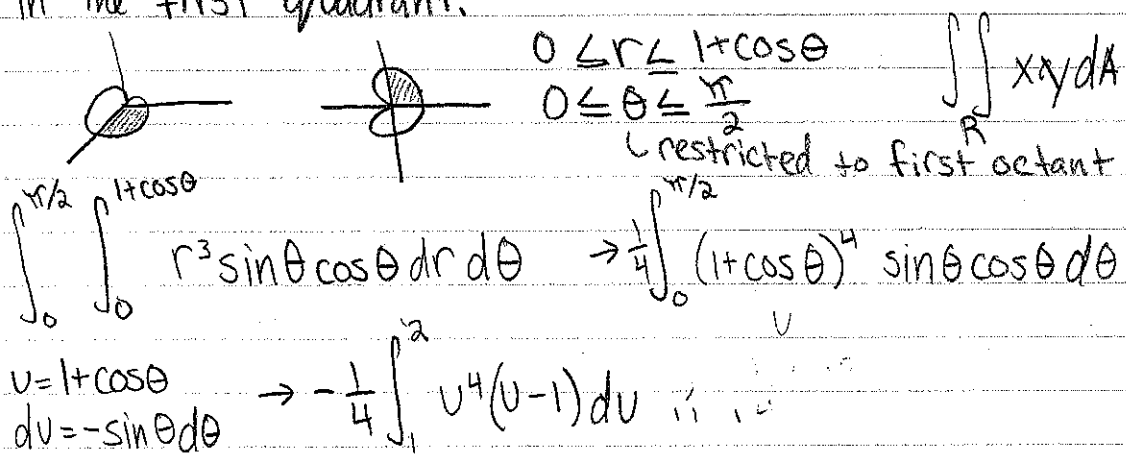 in the first quadrant.
0 ≤ r ≤ 1+cosθ
0 ≤ θ ≤ π/2
∬_R xydA
restricted to first octant
∫_0^{π/2} ∫_0^{1+cosθ} r³ sinθ cosθ dr dθ → 1/4 ∫_0^{π/2} (1+cosθ)⁴ sinθ cosθ dθ
U
U=1+cosθ → -1/4 ∫_1^2 U⁴(U-1)dU
dU=-sinθdθ